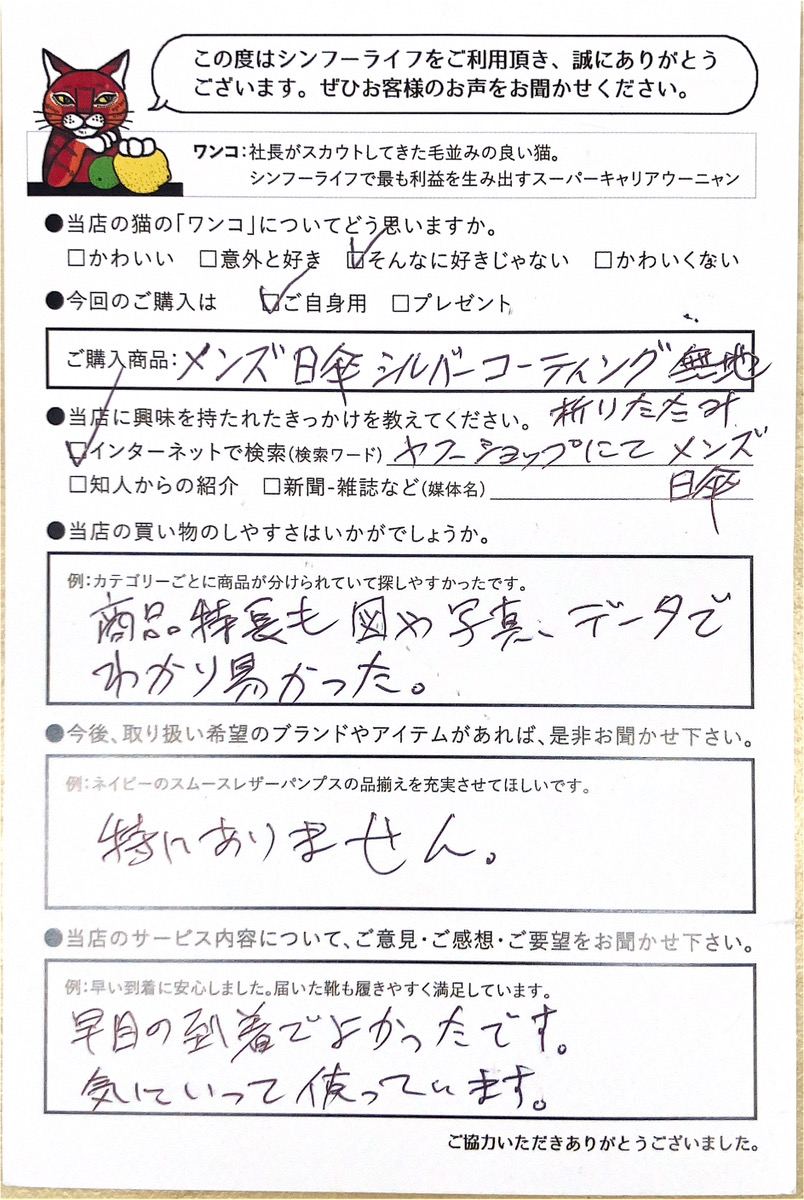 この度はシンフーライフをご利用頂き、誠にありがとう
ございます。ぜひお客様のお声をお聞かせください。
ワンコ：社長がスカウトしてきた毛並みの良い猫。
シンフーライフで最も利益を生み出すスーパーキャリアウーニャン
●当店の猫の「ワンコ」についてどう思いますか。
□かわいい □意外と好き ☑そんなに好きじゃない □かわいくない
●今回のご購入は ☑ご自身用 □プレゼント
ご購入商品：メンズ日傘シルバーコーティング無地
折りたたみ
●当店に興味を持たれたきっかけを教えてください。
☑インターネットで検索(検索ワード) ヤフーショップにて メンズ
日傘
□知人からの紹介 □新聞-雑誌など(媒体名)
●当店の買い物のしやすさはいかがでしょうか。
例：カテゴリーごとに商品が分けられていて探しやすかったです。
商品特長も図や写真、データで
わかり易かった。
●今後、取り扱い希望のブランドやアイテムがあれば、是非お聞かせ下さい。
例：ネイビーのスムースレザーパンプスの品揃えを充実させてほしいです。
特にありません。
●当店のサービス内容について、ご意見・ご感想・ご要望をお聞かせ下さい。
例：早い到着に安心しました。届いた靴も履きやすく満足しています。
早目の到着でよかったです。
気にいって使っています。
ご協力いただきありがとうございました。